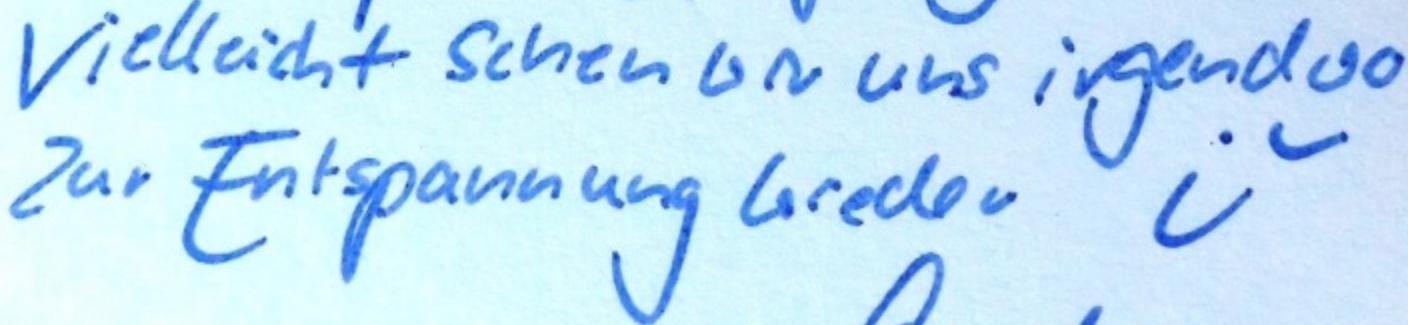 Vielleicht sehen wir uns irgendwo
zur Entspannung wieder